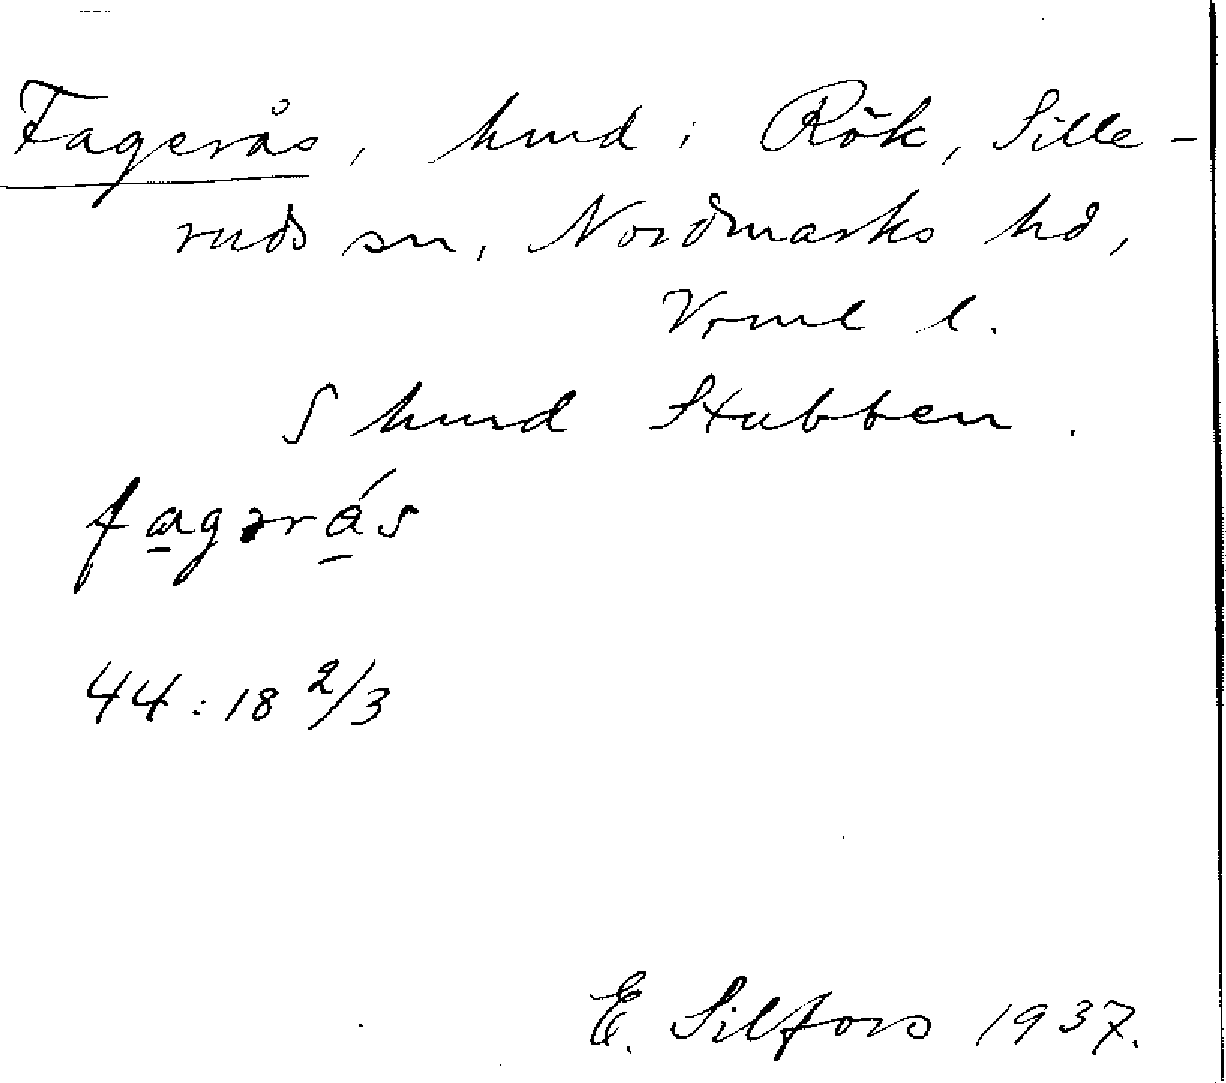 Fagerås, hmd i Rök, Sille-
ruds sn, Nordmarks hd,
Vrml l.
S hmd Stubben.
fagərás
44:18 2/3
E. Silfors 1937.